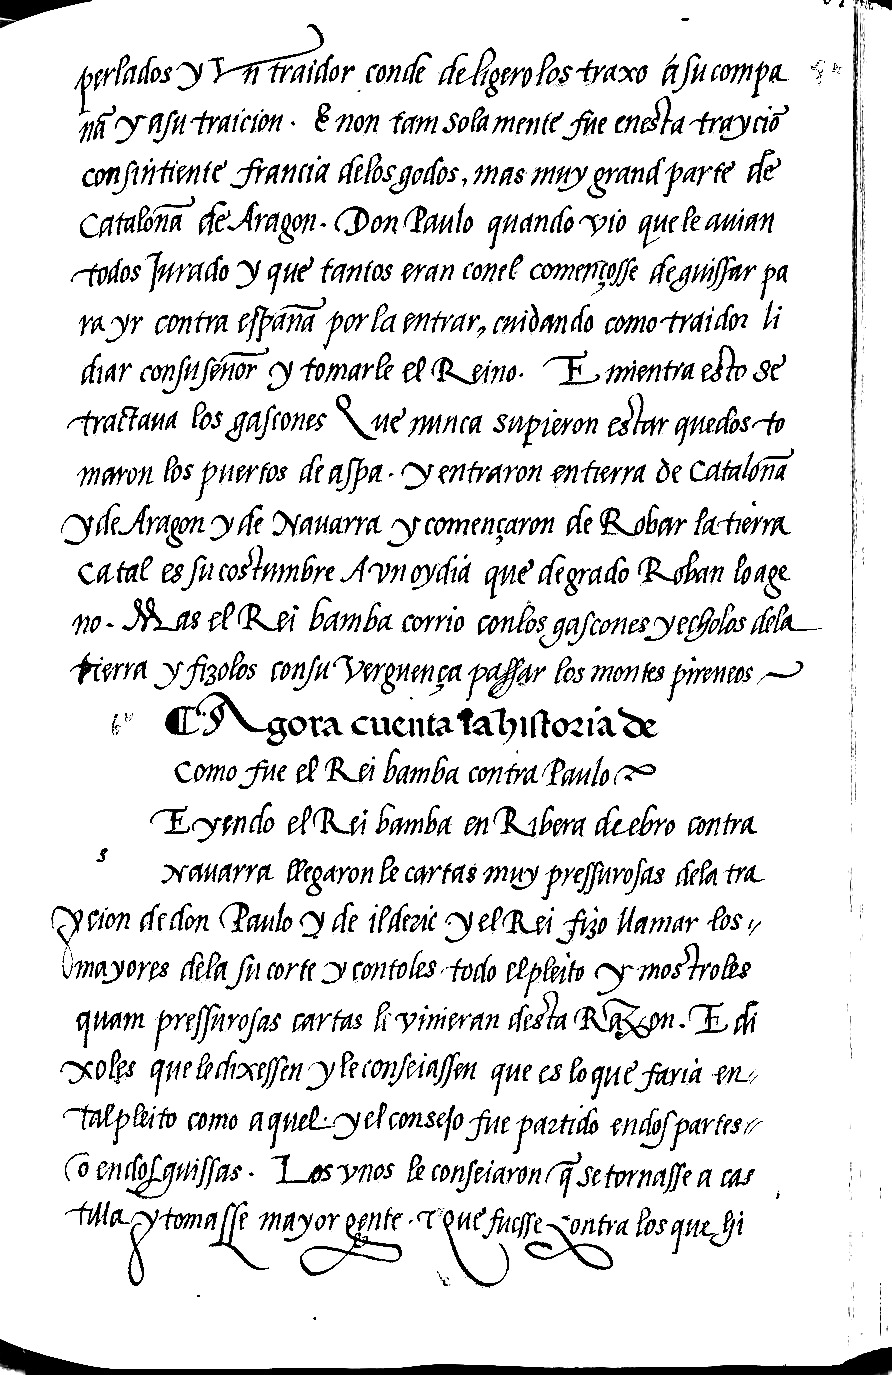 perlados y Vn traidor conde de ligero los traxo á su compa
nã y asu traicion. E non tam sola mente fue enesta trayciõ
consintiente francia delos godos, mas muy grand parte de
Catalonã de Aragon. Don Paulo quando vio que le auian
todos Jurado y que tantos eran conel començosse de guissar pa
ra yr contra espanã por la entrar, cuidando como traidor li
diar consu senõr y tomarle el Reino. E mientra esto se
tractaua los gascones Que nunca supieron estar quedos to
maron los puertos de aspa. y entraron en tierra de Catalonã
y de Aragon y de Nauarra y començaron de Robar la tierra
Ca tal es su costumbre Avn oy dia que de grado Roban lo age
no. Mas el Rei bamba corrio conlos gascones y echolos dela
tierra y fizolos consu Verguença passar los montes pireneos
Agora cuenta la historia de
Como fue el Rei bamba contra Paulo
Eyendo el Rei bamba en Ribera de ebro contra
s
Nauarra llegaron le cartas muy pressurosas dela tra
ycion de don Paulo y de ilderic y el Rei fizo llamar los
mayores dela su corte y contoles todo el pleito y mostroles
quam pressurosas cartas li vinieran desta Razon. E di
xoles que le dixessen y le conseiassen que es lo que faria en
tal pleito como aquel. y el consejo fue partido en dos partes
o en dos guissas. Los vnos le conseiaron q̃ se tornasse a cas
tilla y tomasse mayor gente. τ que fuesse contra los que hi